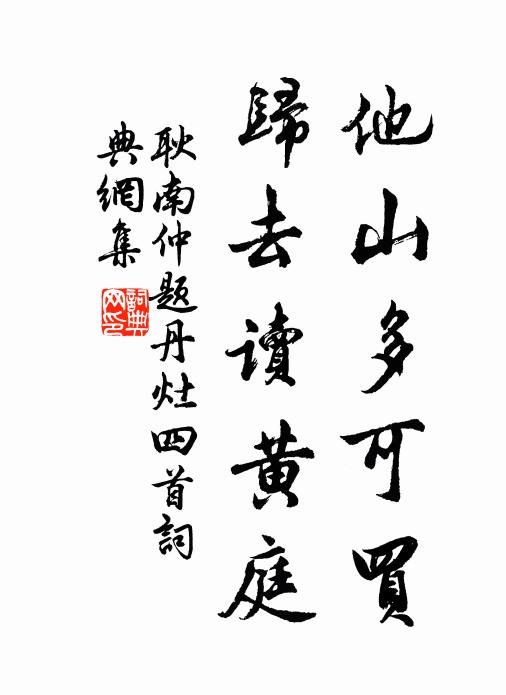 他山多可買
歸去讀黄庭
耿南仲題丹灶四首詞
典網集
詞典
网印